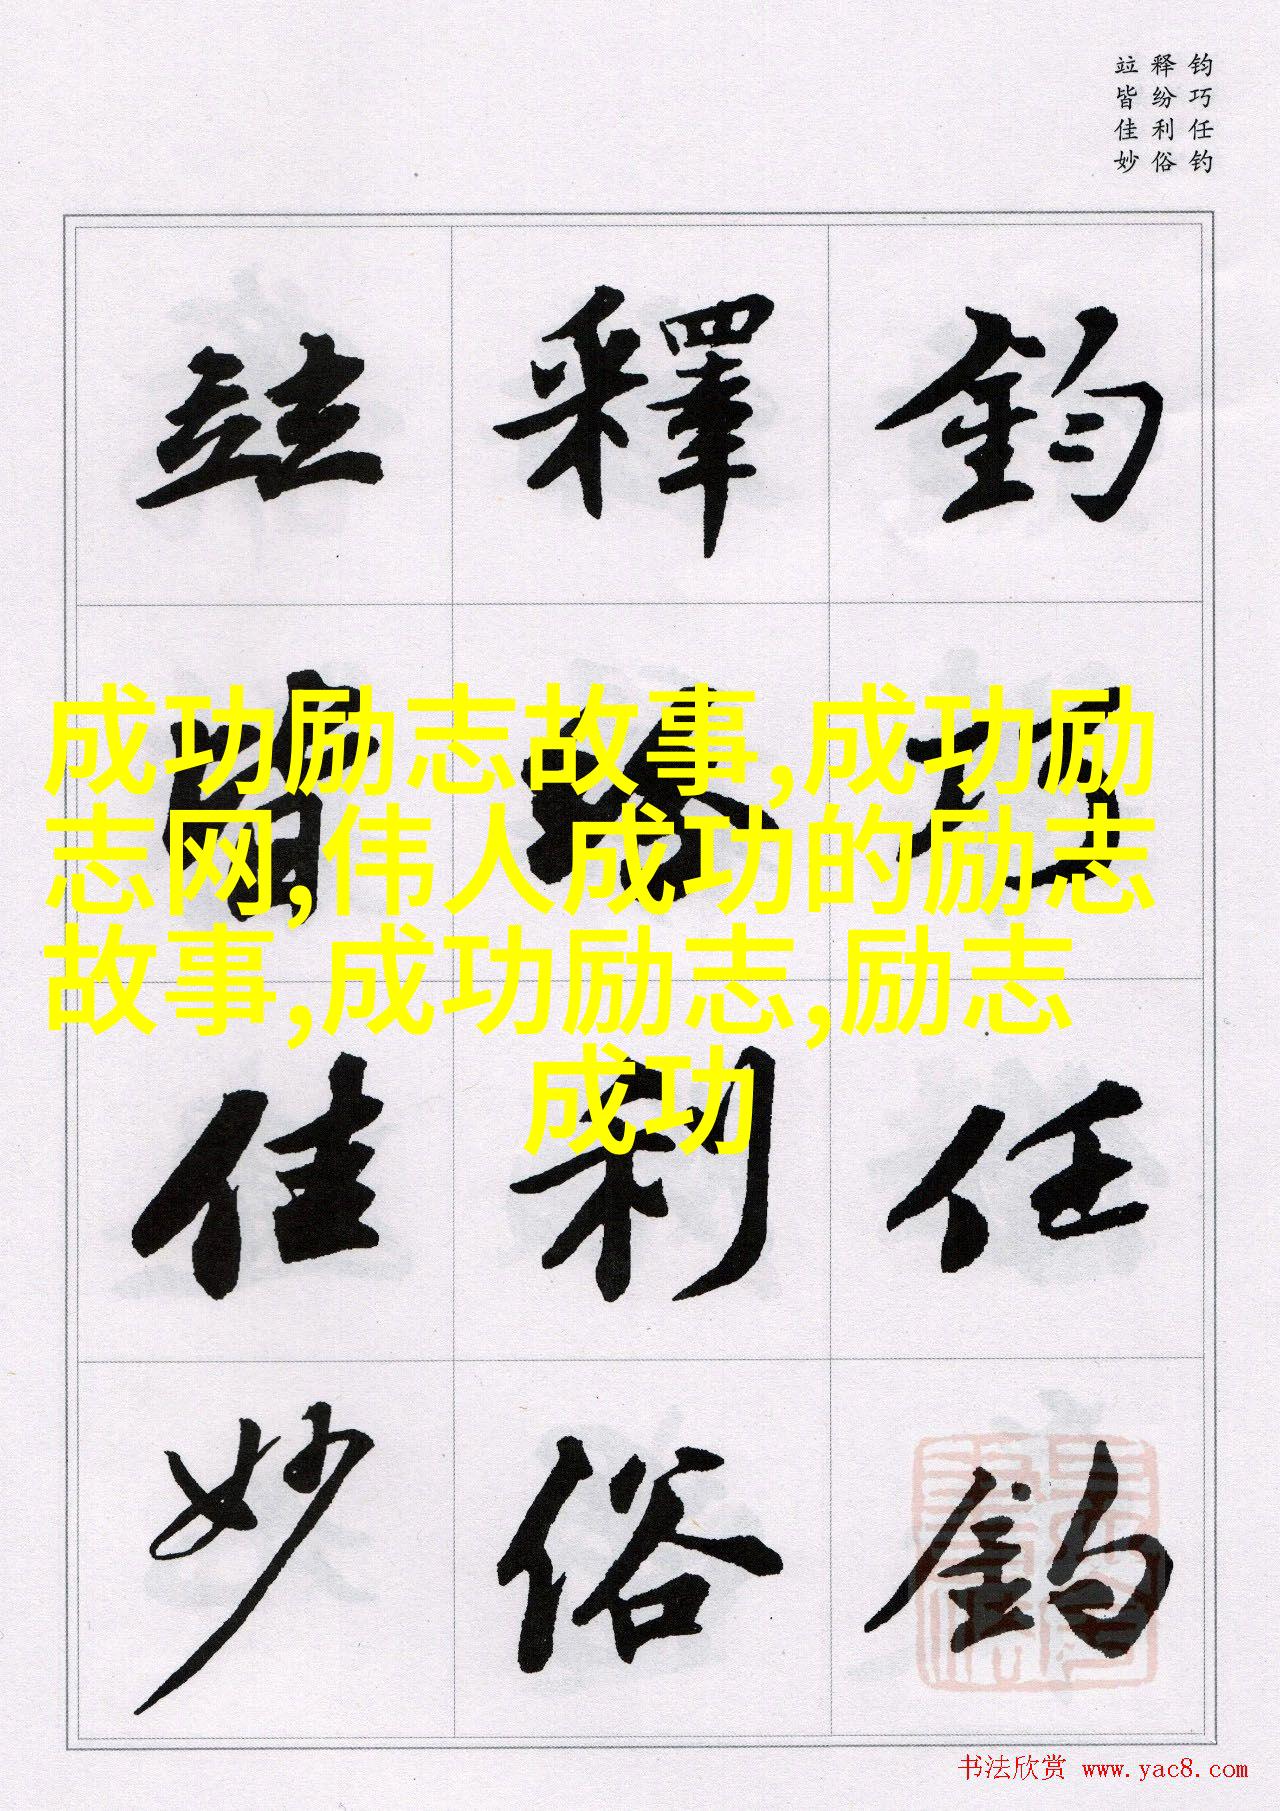 竝 释 钧
皆 纷 巧
佳 利 任
妙 俗 钓
竝 釋 鈞
皆 紛 巧
佳 利 任
妙 俗 釣
成功励志故事,成功励
志网,伟人成功的励志
故事,成功励志,励志
成功
书法欣赏 www.yac8.com